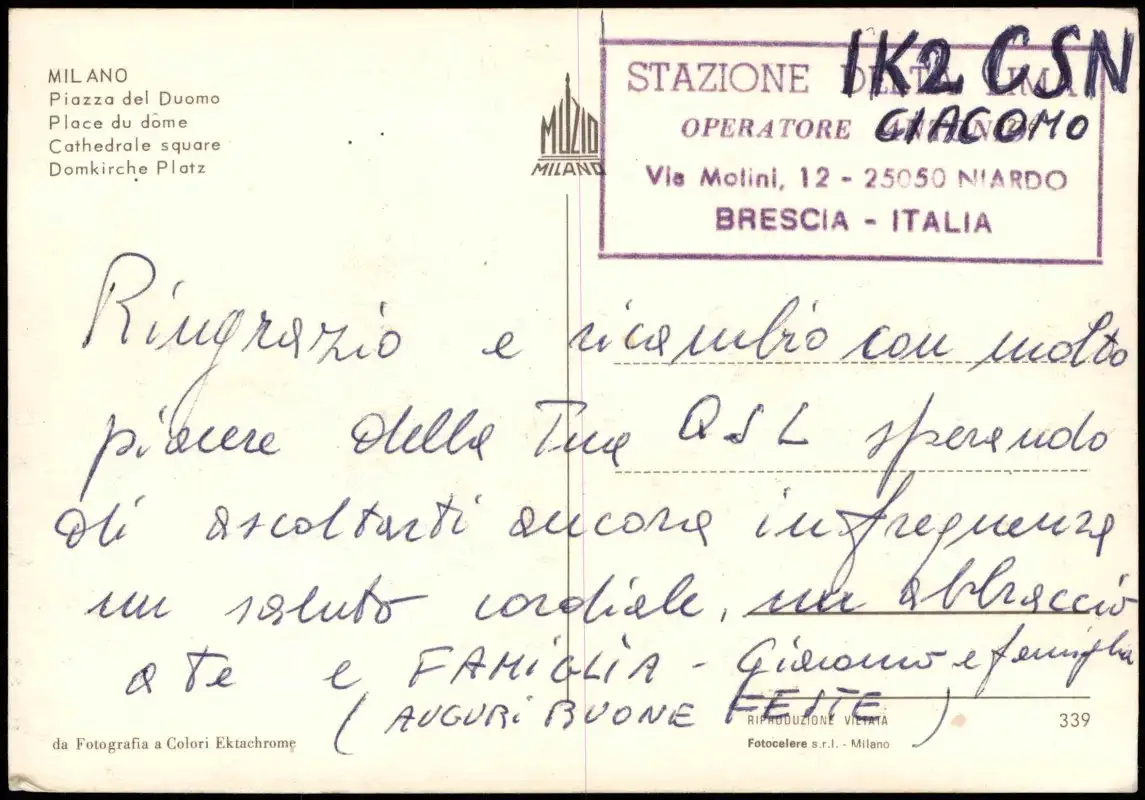 MILANO
Piazza del Duomo
Place du dôme
Cathedrale square
Domkirche Platz
MUZIO
MILANO
IK2 CSN
GIACOMO
STAZIONE
OPERATORE
Via Molini, 12 - 25050 NIARDO
BRESCIA - ITALIA
Ringrazio e ricambio con molto
piacere della Tua QSL sperando
di ascoltarti ancora in frequenza
un saluto cordiale, un abbraccio
a Te e FAMIGLIA - Giacomo e famiglia
(AUGURI BUONE FESTE)
da Fotografia a Colori Ektachrome
RIPRODUZIONE VIETATA
Fotocelere s.r.l. - Milano
339